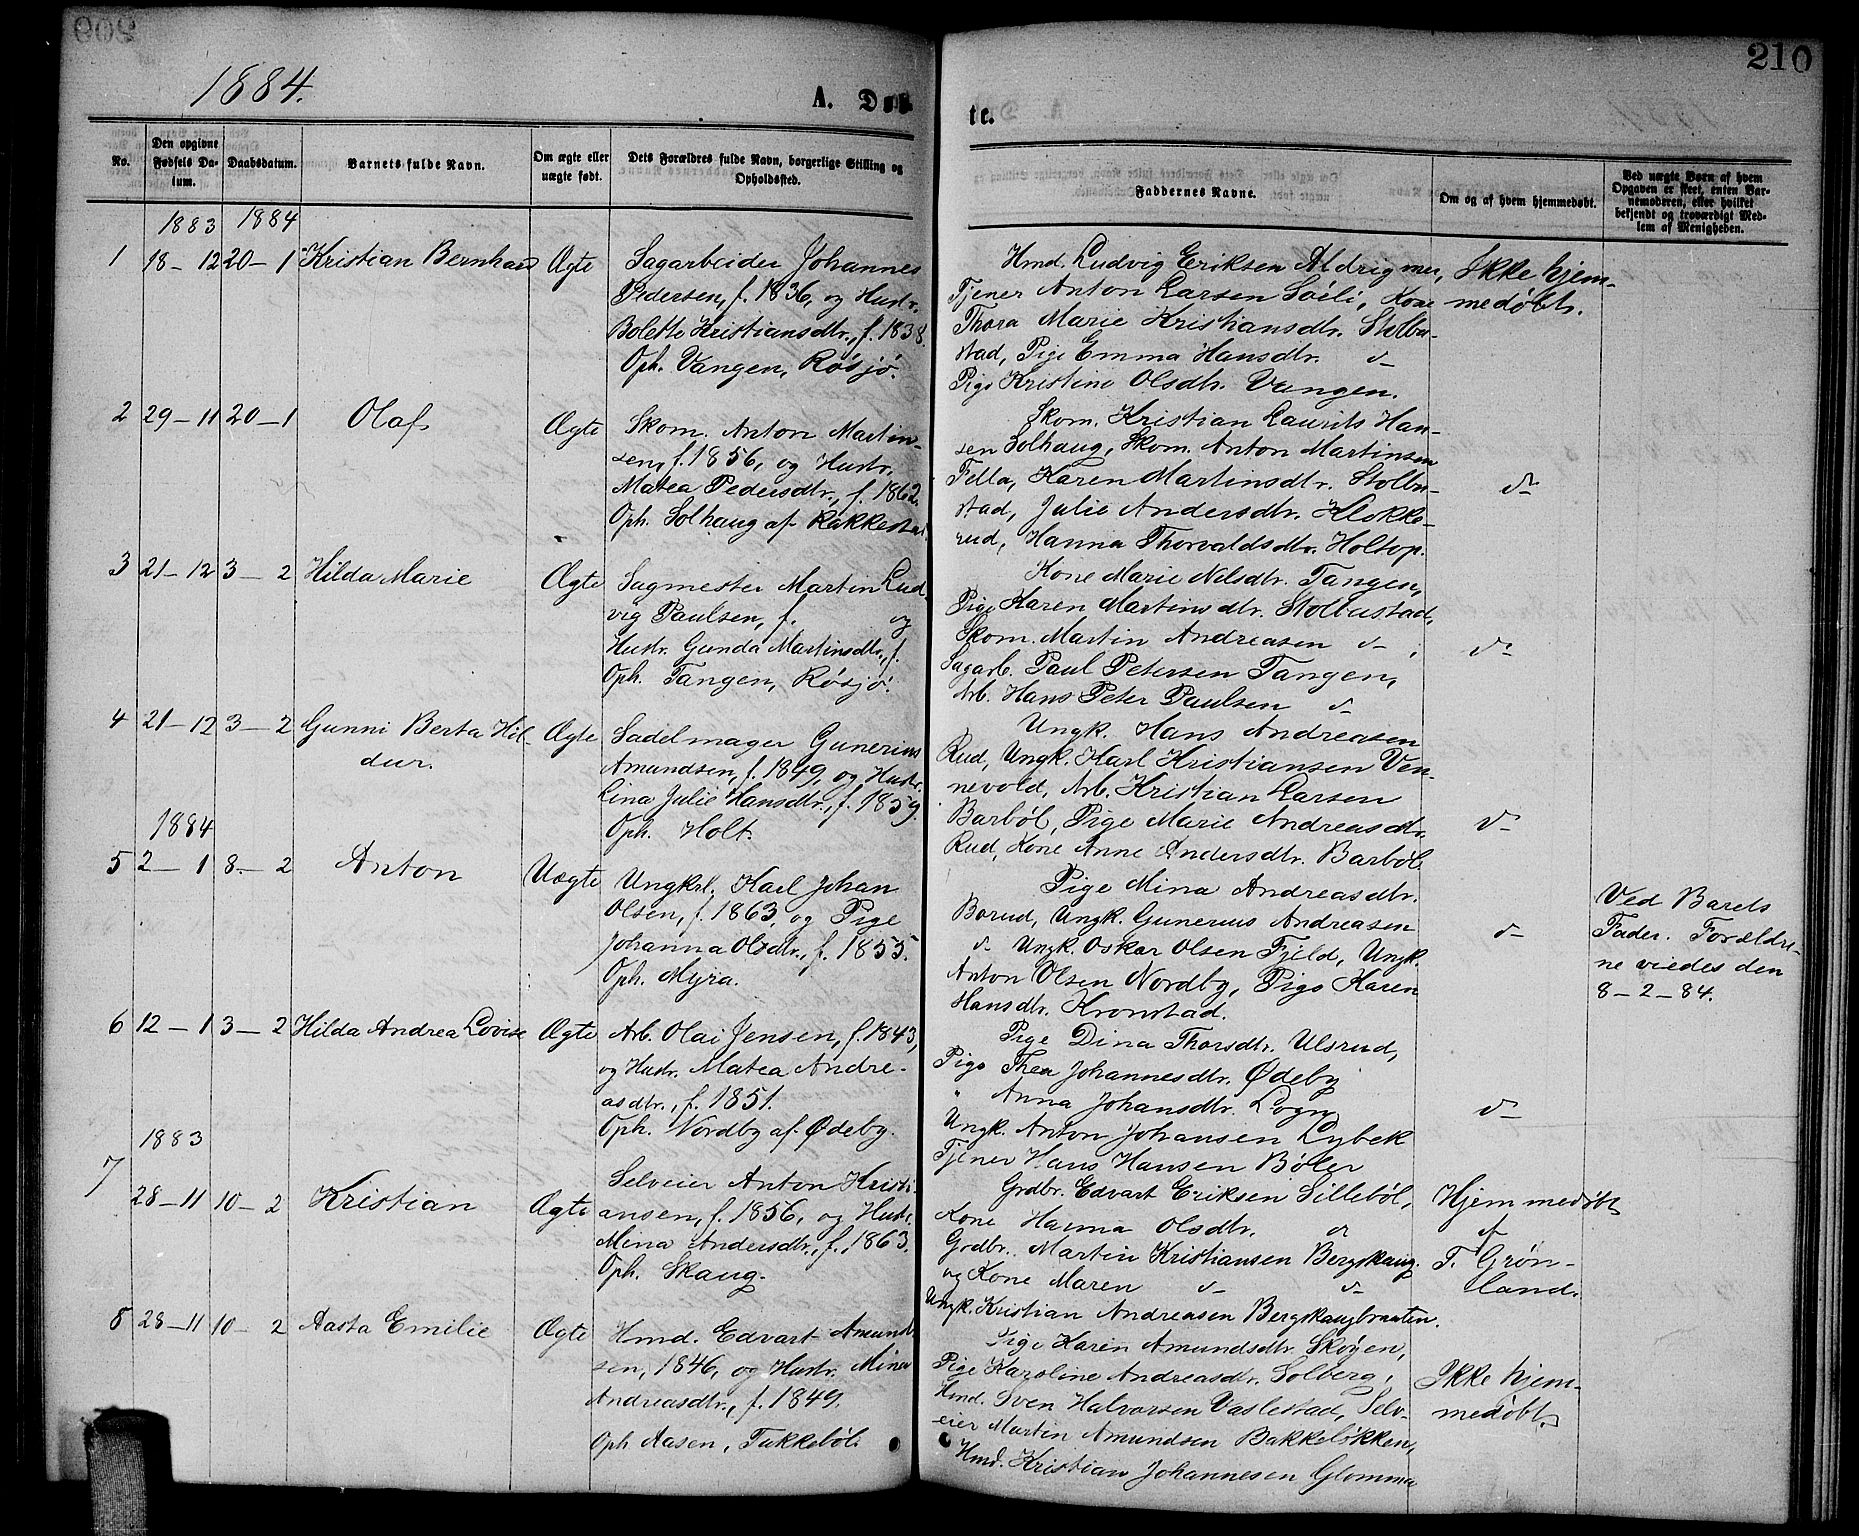 210
1884.
A. Døb
te.
No.
Den opgivne Fødsels Datum.
Daabsdatum.
Barnets fulde Navn.
Om ægte eller uægte født.
Dets Forældres fulde Navn, borgerlige Stilling og Opholdssted.
Faddernes Navne.
Om og af hvem hjemmedøbt.
Ved uægte Børn af hvem Opgaven er skeet, enten Barnemoderen, eller hvilket bekjendt og troværdigt Medlem af Menigheden.
1883 1884
1 18-12 20-1 Kristian Bernhard Ægte
Sagarbeider Johannes
Pedersen, f. 1836, og Hustr.
Bolette Kristiansdtr., f. 1838.
Oph. Vangen, Røsjø.
Hmd. Ludvig Eriksen Aldrigmer,
Tjener Anton Larsen Soéli, Kone
Thora Marie Kristiansdtr. Stolbu-
stad, Pige Emma Hansdtr. d-
Pige Kristine Olsdtr. Vangen.
Ikke hjem-
medøbt.
2 29-11 20-1 Olaf Ægte
Skom. Anton Martin-
sen, f. 1856, og Hustr.
Matea Pedersdtr., f. 1862.
Oph. Solhaug af Rakkestad.
Skom. Kristian Laurits Han-
sen Solhaug, Skom. Anton Martinsen
Fella, Karen Martinsdtr. Stolbu-
stad, Julie Andersdtr. Klokke-
rud, Hanna Thorvaldsdtr. Holtop.
d-
3 21-12 3-2 Hilda Marie Ægte
Sagmester Martin Lud-
vig Paulsen, f. og
Hustr. Gunda Martinsdtr., f.
Oph. Tangen, Røsjø.
Kone Marie Nilsdtr. Tangen,
Pige Karen Martinsdtr. Stolbustad,
Skom. Martin Andreasen d-,
Sagarb. Paul Petersen Tangen,
Arb. Hans Peter Paulsen d-
d-
4 21-12 3-2 Gunni Berta Hil-
dur. Ægte
Sadelmager Gunerius
Amundsen, f. 1849, og Hustr.
Lina Julie Hansdtr., f. 1859.
Oph. Holt.
Ungk. Hans Andreasen
Rud, Ungk. Karl Kristiansen Ven-
nevold, Arb. Kristian Larsen
Barbøl, Pige Marie Andreasdtr.
Rud, Kone Anne Andersdtr. Barbøl.
d-
1884
5 2-1 8-2 Anton Uægte
Ungkrl. Karl Johan
Olsen, f. 1863, og Pige
Johanna Olsdtr., f. 1855.
Oph. Myra.
Pige Mina Andreasdtr.
Borud, Ungk. Gunerius Andreasen
d- Ungk. Oskar Olsen Fjeld, Ungk.
Anton Olsen Nordby, Pige Karen
Hansdtr. Kronstad.
d-
Ved Barets
Fader. Forældre-
ne viedes den
8-2-84.
6 12-1 3-2 Hilda Andrea Lovise Ægte
Arb. Olai Jensen, f. 1843,
og Hustr. Matea Andre-
asdtr., f. 1851.
Oph. Nordby af Ødeby.
Pige Dina Thorsdtr. Ulsrud,
Pige Thea Johannesdtr. Ødeby
" Anna Johansdtr. Logn
Ungk. Anton Johansen Lybek
Tjener Hans Hansen Bøler
d-
1883
7 28-11 10-2 Kristian Ægte
Selveier Anton Kristi-
ansen, f. 1856, og Hustr.
Mina Andersdtr., f. 1863.
Oph. Skaug.
Grdbr. Edvart Eriksen Sillebøl,
Kone Hanna Olsdtr. d-
Grdbr. Martin Kristiansen Bergskaug.
og Kone Maren d- d-
Ungk. Kristian Andreasen Bergskaugbraaten.
Hjemmedøbt
af
T. Grøn-
land.
8 28-11 10-2 Aasta Emilie Ægte
Hmd. Edvart Amund-
sen, 1846, og Hustr. Mina
Andreasdtr., f. 1849.
Oph. Aasen, Tukkebøl.
Pige Karen Amundsdtr. Skogen,
Pige Karoline Andreasdtr. Solberg,
Hmd. Sven Halvorsen Vaslestad, Selv-
eier Martin Amundsen Bakkeløkken,
Hmd. Kristian Johannesen Glomma
Ikke hjem-
medøbt.